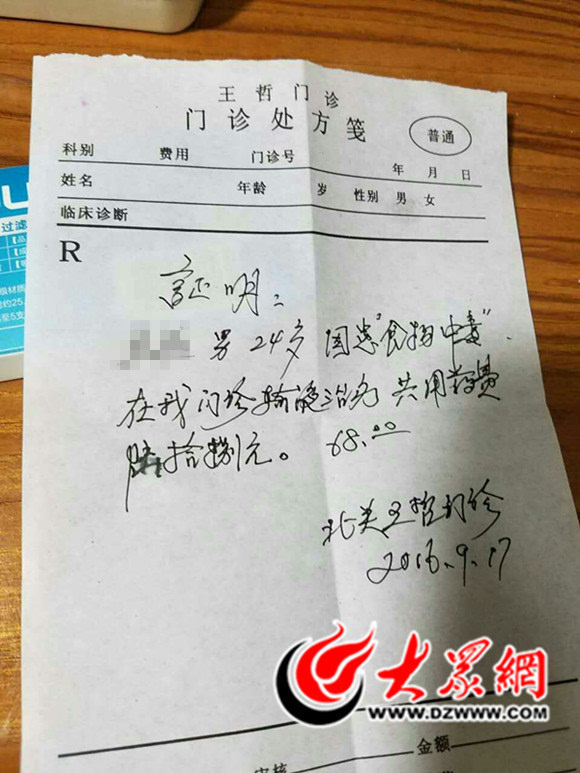 王哲门诊
门诊处方笺
普通
科别 费用 门诊号 年 月 日
姓名 年龄 岁 性别 男 女
临床诊断
R
证明:
男 24岁 因患"食物中毒"
在我门诊输液治疗 共用药费
陆拾捌元。 68.00
北关王哲门诊
2016.9.17
大眾網
WWW.DZWWW.COM
金额
审核
过滤